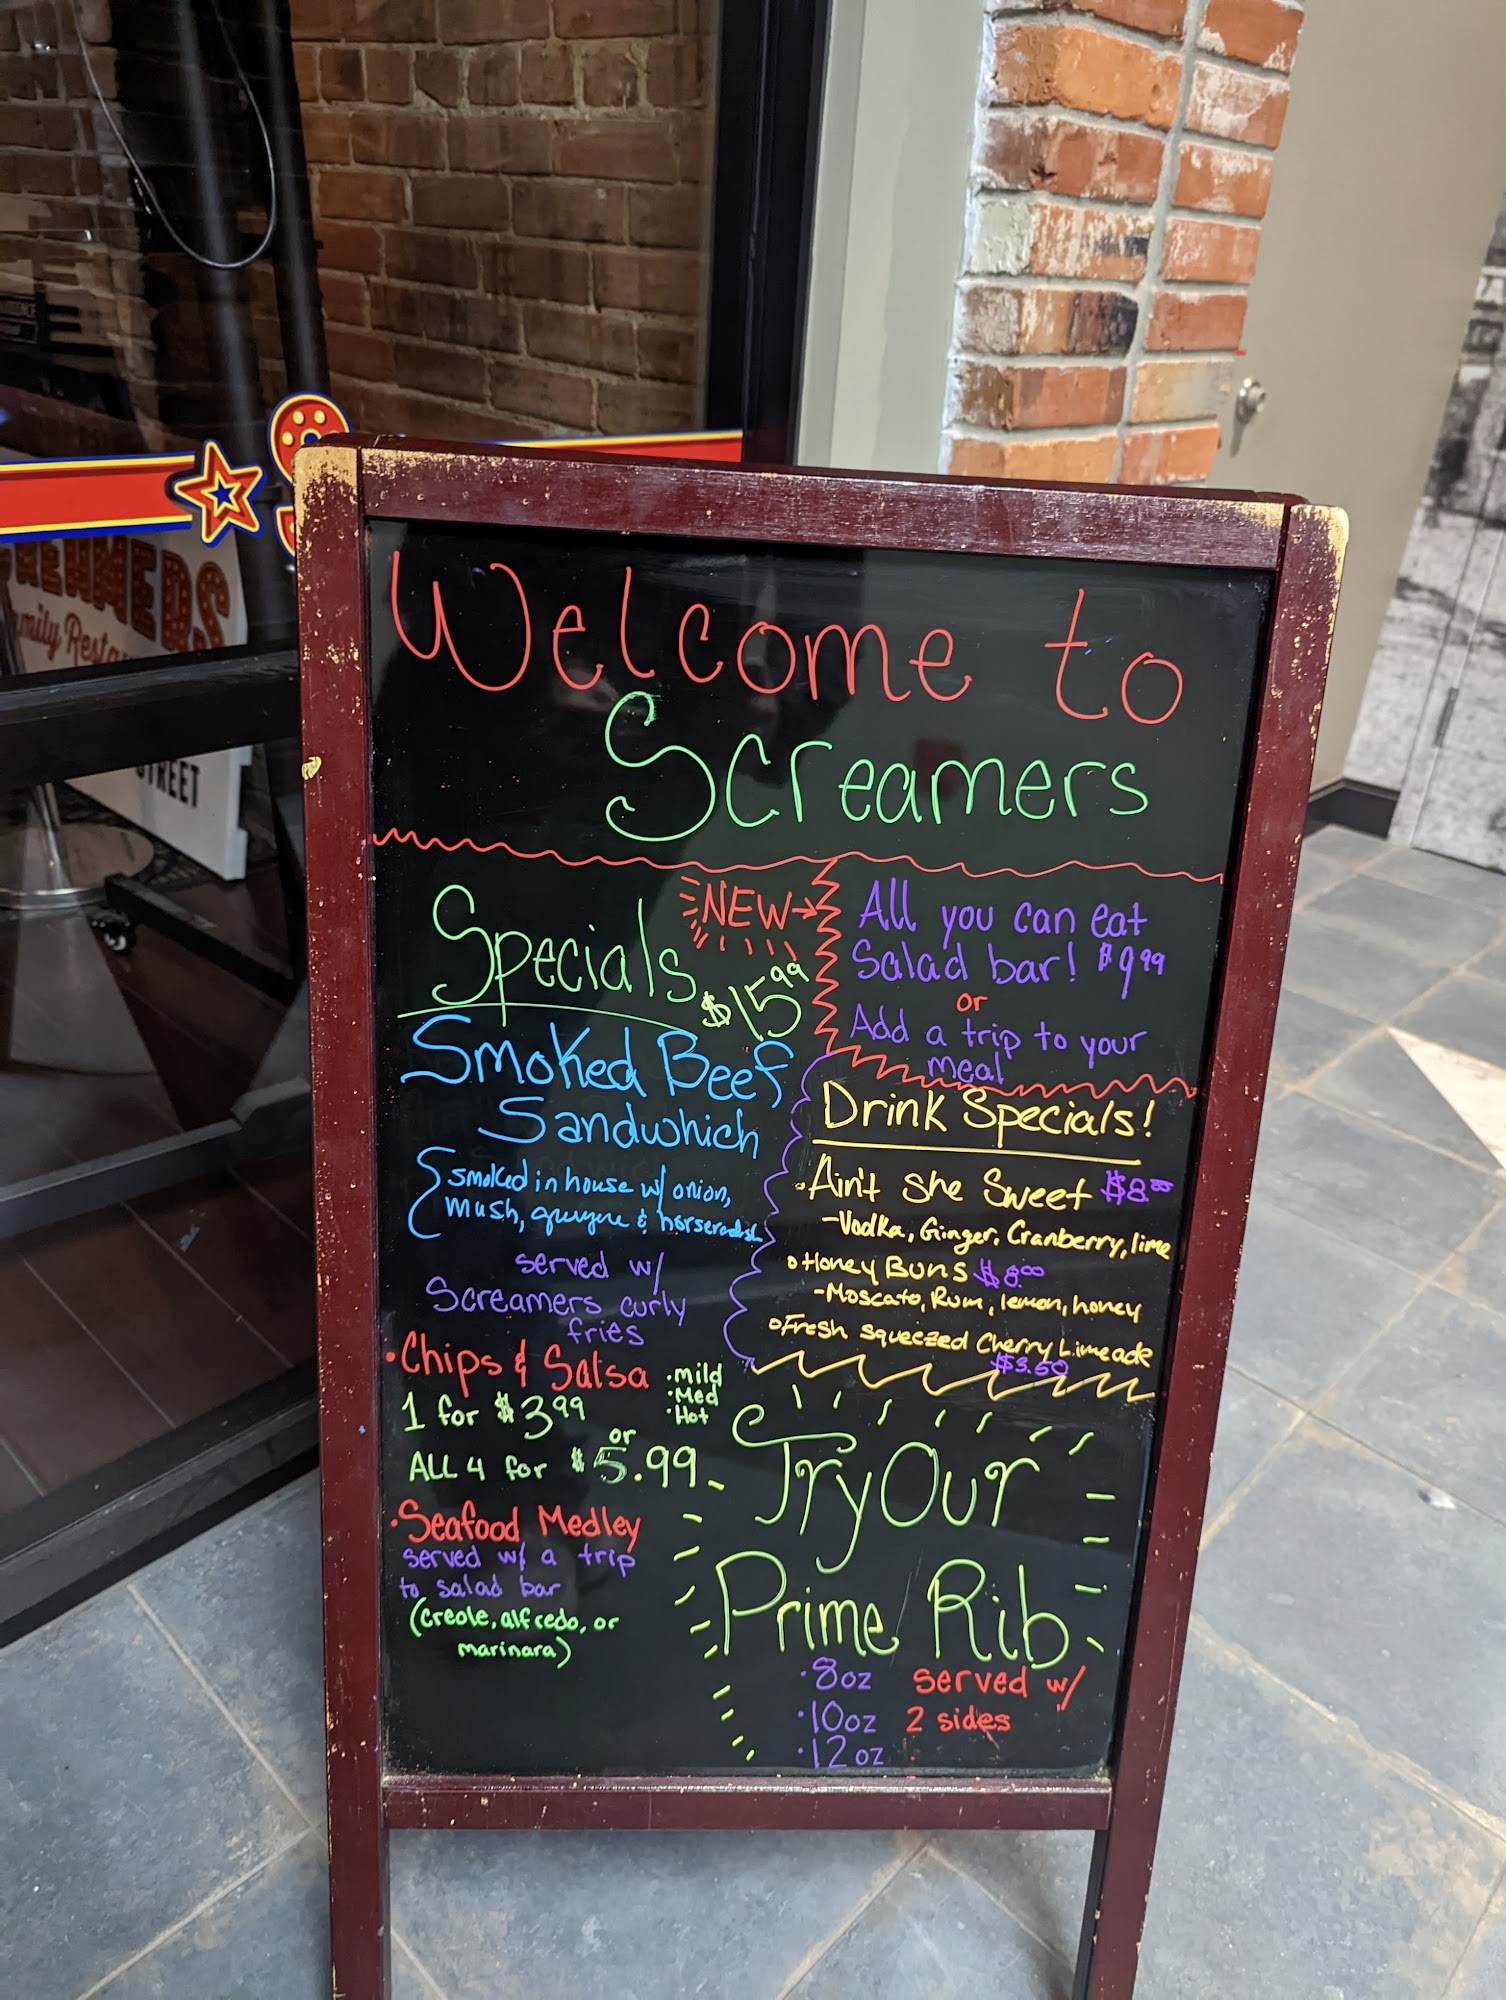 Welcome to
Screamers
Specials
$15.99
Smoked Beef
Sandwhich
smoked in house w/ onion,
mush, gruyere & horseradish
served w/
Screamers curly
fries
• Chips & Salsa
• mild
• Med
• Hot
1 for $3.99
or
ALL 4 for $5.99
• Seafood Medley
served w/ a trip
to salad bar
(creole, alfredo, or
marinara)
NEW→
All you can eat
Salad bar! $9.99
or
Add a trip to your
meal
Drink Specials!
• Ain't she Sweet $8.00
- Vodka, Ginger, Cranberry, lime
o Honey Buns $8.00
- Moscato, Rum, lemon, honey
o Fresh squeezed Cherry Limeade
$3.50
Try Our
Prime Rib
• 8oz served w/
• 10oz 2 sides
• 12oz
STREET